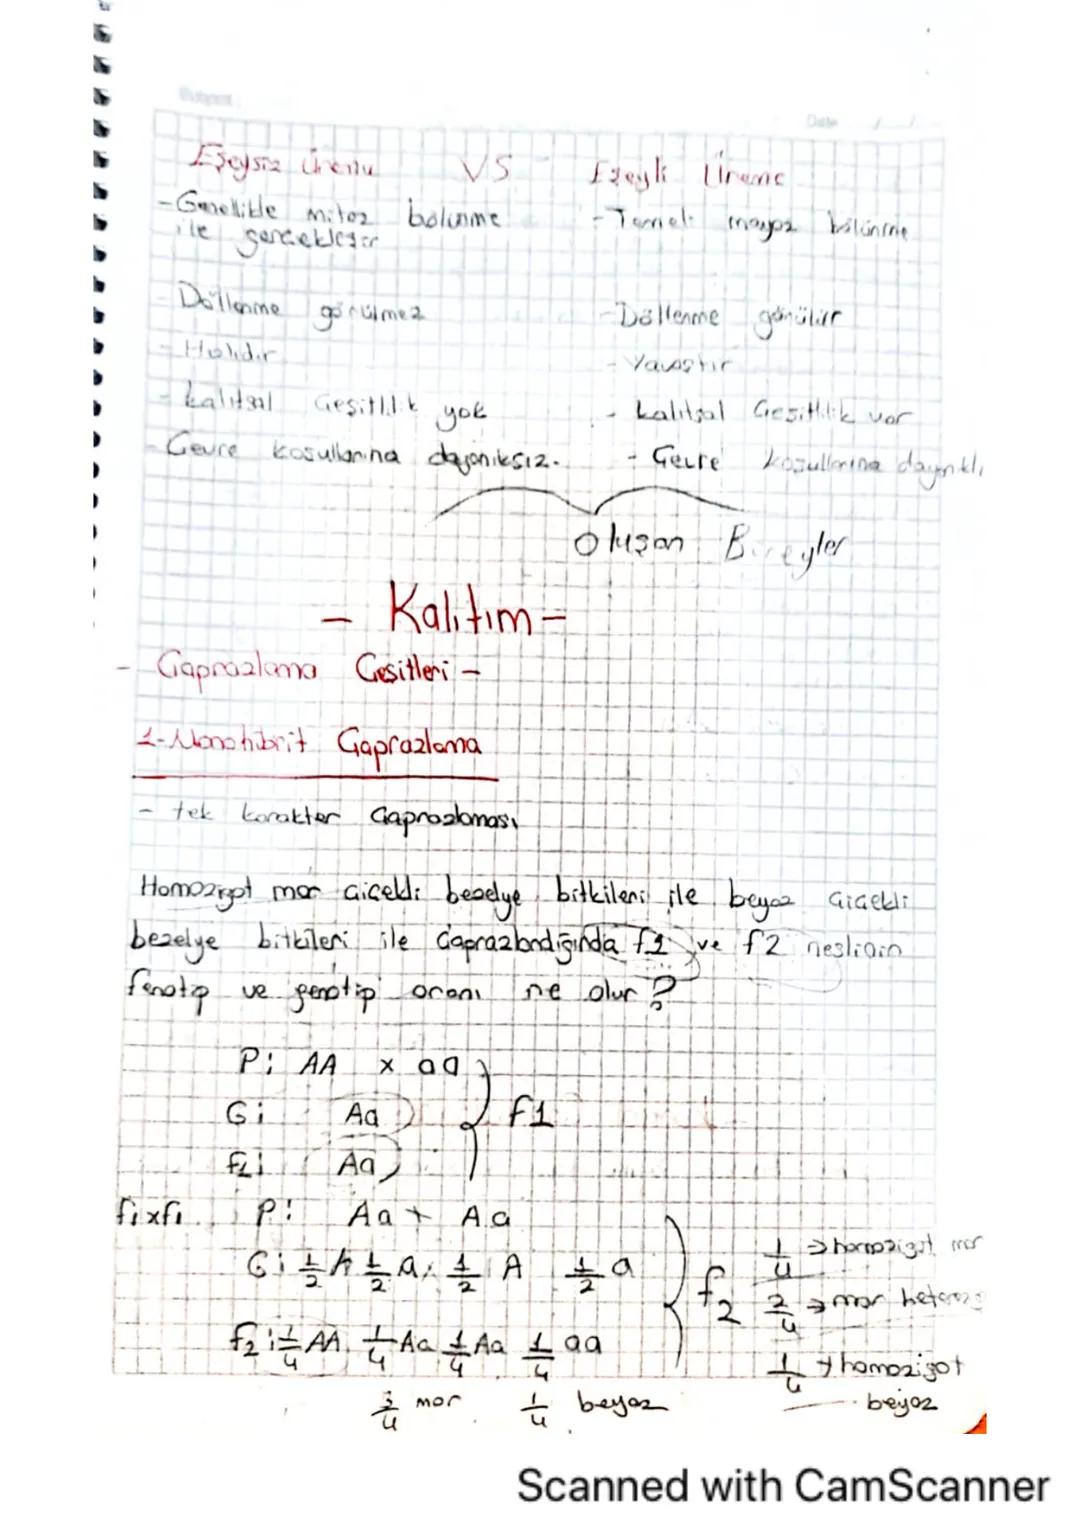 Subject:
Date / /
Eşeysiz Üreme VS Eşeyli Üreme
- Genellikle mitoz bölünme ile gerçekleşir
- Temeli mayoz bölünme
- Döllenme görülmez
- Döllenme görülür
- Hızlıdır
- Yavaştır
- Kalıtsal Çeşitlilik yok
- Kalıtsal Çeşitlilik var
- Çevre koşullarına dayanıksız.
- Çevre koşullarına dayanıklı
Oluşan Bireyler
- Kalıtım -
- Çaprazlama Çeşitleri -
1- Monohibrit Çaprazlama
- tek karakter Çaprazlaması
Homozigot mor çiçekli bezelye bitkileri ile beyaz çiçekli
bezelye bitkileri ile çaprazlandığında f1 ve f2 neslinin
fenotip ve genotip oranı ne olur?
P: AA x aa
G: Aa
F1
f1: Aa
f1xf1 P: Aa + Aa
G: 1/2 A 1/2 a, 1/2 A 1/2 a
f2
1/4 → homozigot mor
2/4 → mor heteroz
f2: 1/4 AA 1/4 Aa 1/4 Aa 1/4 aa
1/4 → homozigot
beyaz
3/4 mor 1/4 beyaz
Scanned with CamScanner